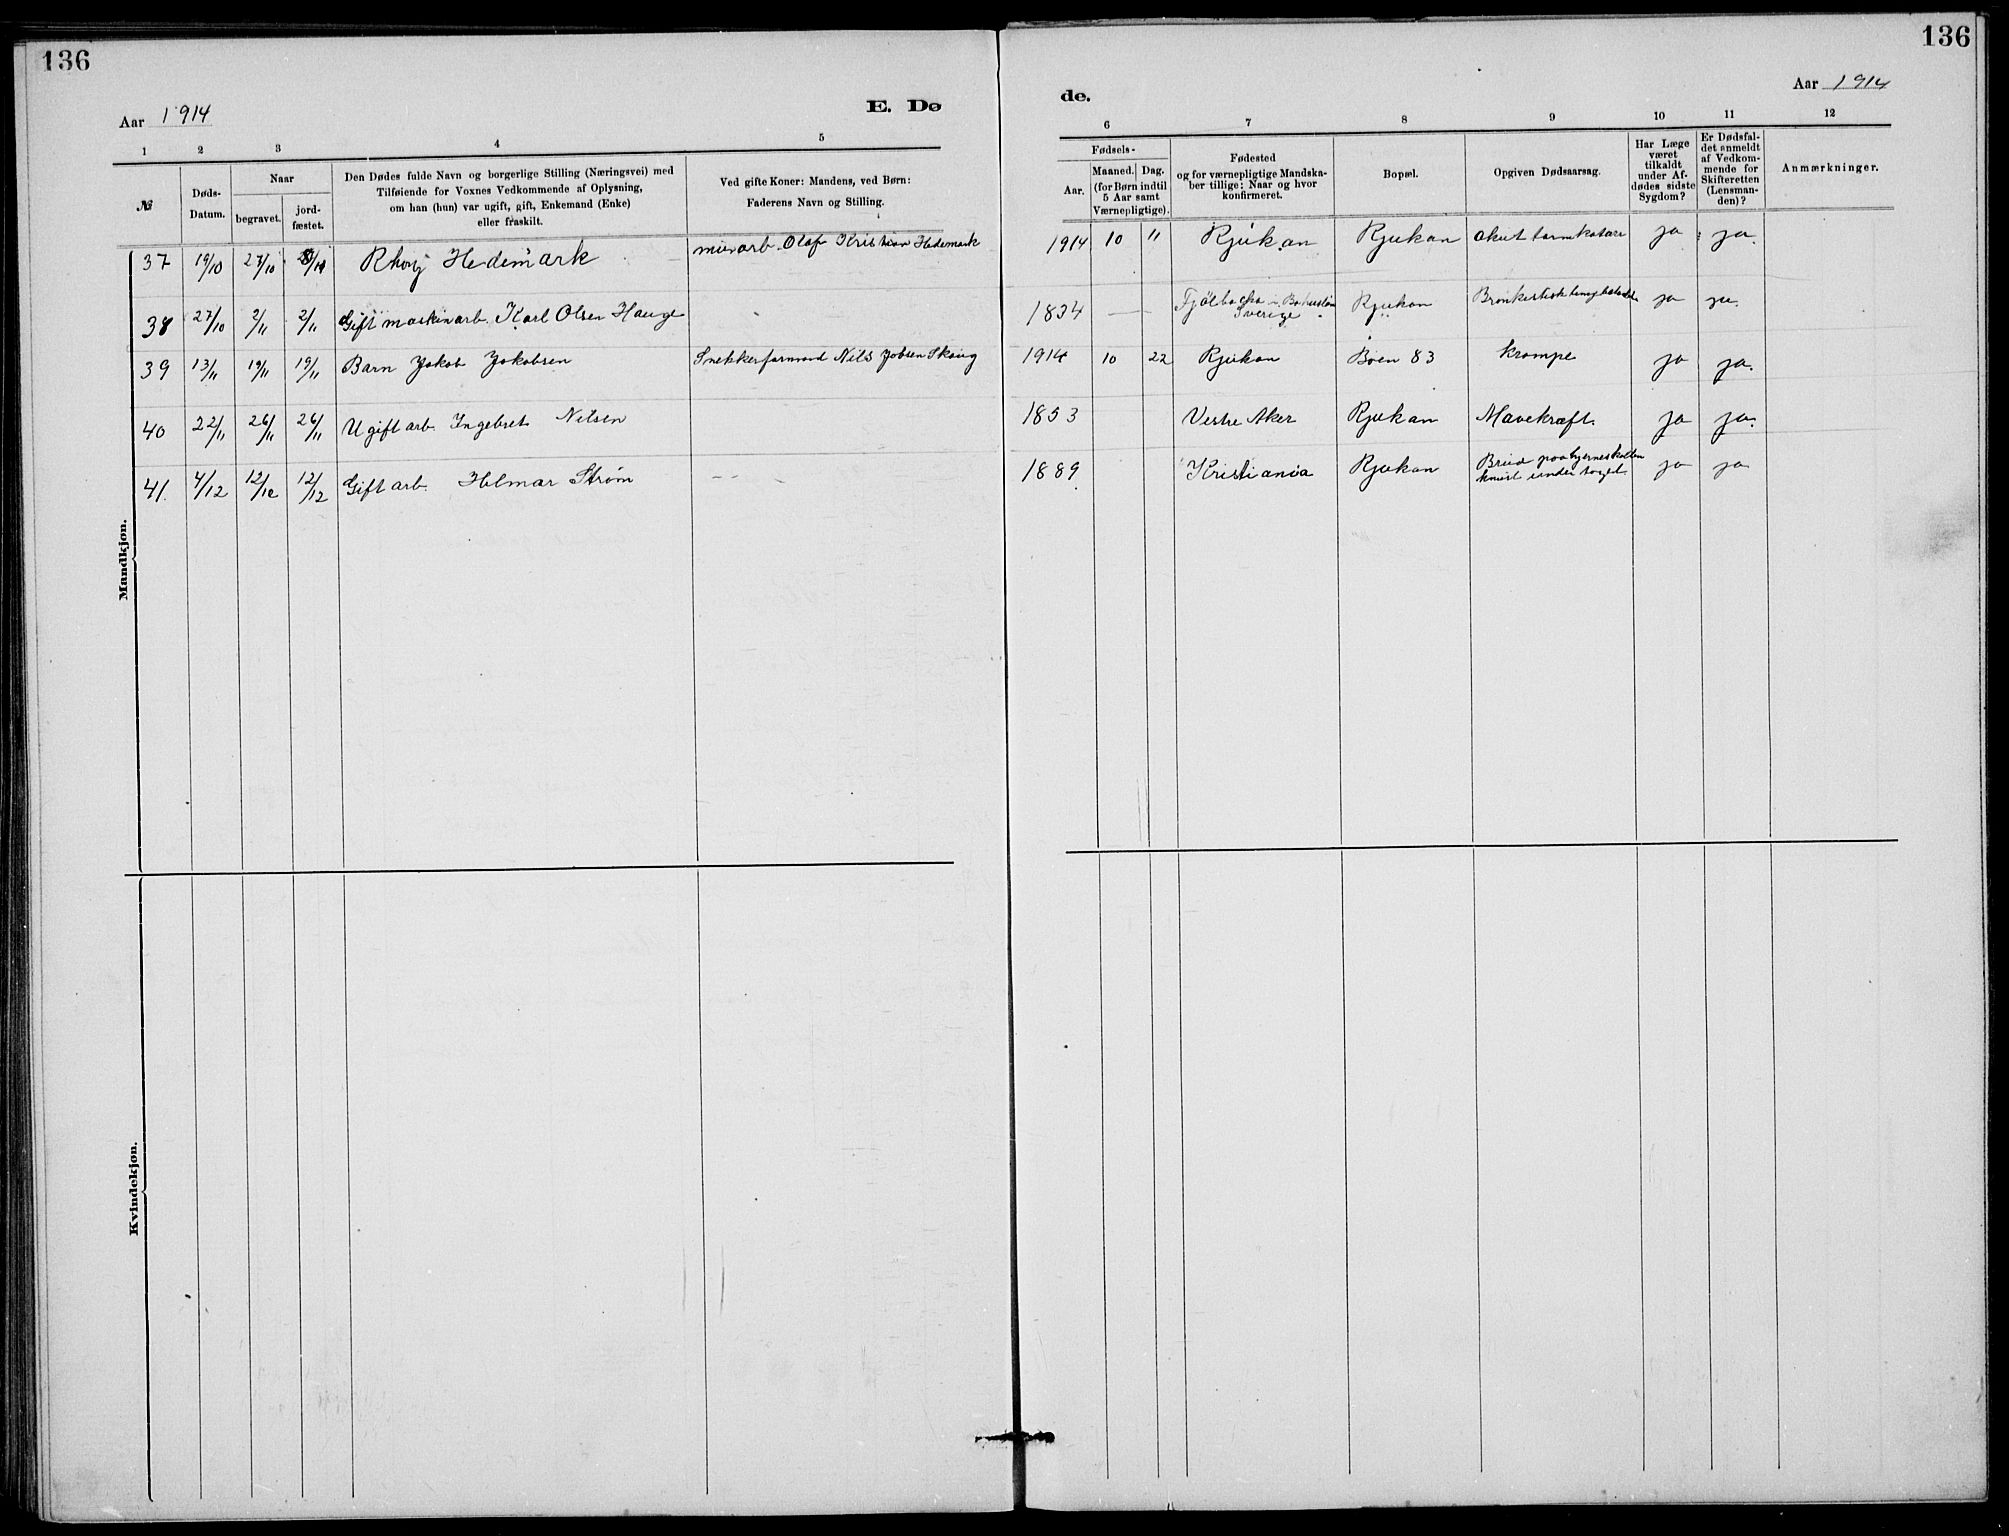 136
136
Aar 1914
E. Dø
de.
Aar 1914
1 2 3 4 5
6 7 8 9 10 11 12
№
Døds-
Datum.
Naar
begravet.
jord-
fæstet.
Den Dødes fulde Navn og borgerlige Stilling (Næringsvei) med
Tilføiende for Voxnes Vedkommende af Oplysning,
om han (hun) var ugift, gift, Enkemand (Enke)
eller fraskilt.
Ved gifte Koner: Mandens, ved Børn:
Faderens Navn og Stilling.
Fødsels-
Aar.
Maaned. Dag.
(for Børn indtil
5 Aar samt
Værnepligtige).
Fødested
og for værnepligtige Mandska-
ber tillige: Naar og hvor
konfirmeret.
Bopæl.
Opgiven Dødsaarsag.
Har Læge
været
tilkaldt
under Af-
dødes sidste
Sygdom?
Er Dødsfal-
det anmeldt
af Vedkom-
mende for
Skifteretten
(Lensman-
den)?
Anmærkninger.
Mandkjøn.
37 19/10 27/10 Hedemark murarb. Olaf Kristian Hedemark 1914 10 11 Rjukan Rjukan akut tarmkatarr ja ja.
38 27/10 2/11 2/11 Gift maskinarb. Karl Olsen Hauge 1834 — — Sverige Rjukan ja ja.
39 13/11 19/11 19/11 Barn Jakob Jakobsen Snekkerformand Nils Jobsen Skaug 1914 10 22 Rjukan Bøen 83 Krampe ja ja.
40 22/11 26/11 26/11 Ugift arb. Ingebret Nilsen 1853 Vestre Aker Rjukan Mavekræft. ja ja.
41. 4/12 12/12 12/12 Gift arb. Hilmar Strøm — — 1889. Kristiania Rjukan Brud paa hjerneskallen
knust under toget. ja ja
Kvindekjøn.